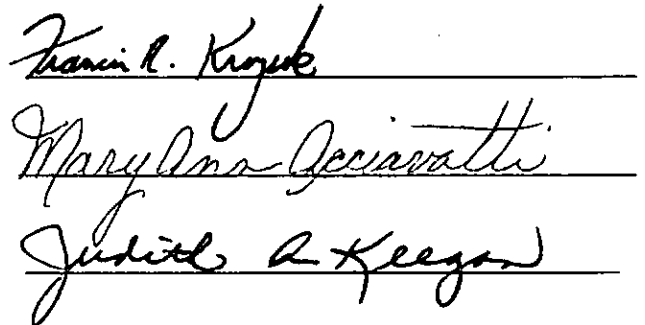 Francis R.
Mary Ann Acciavatti
Judith A Keegan